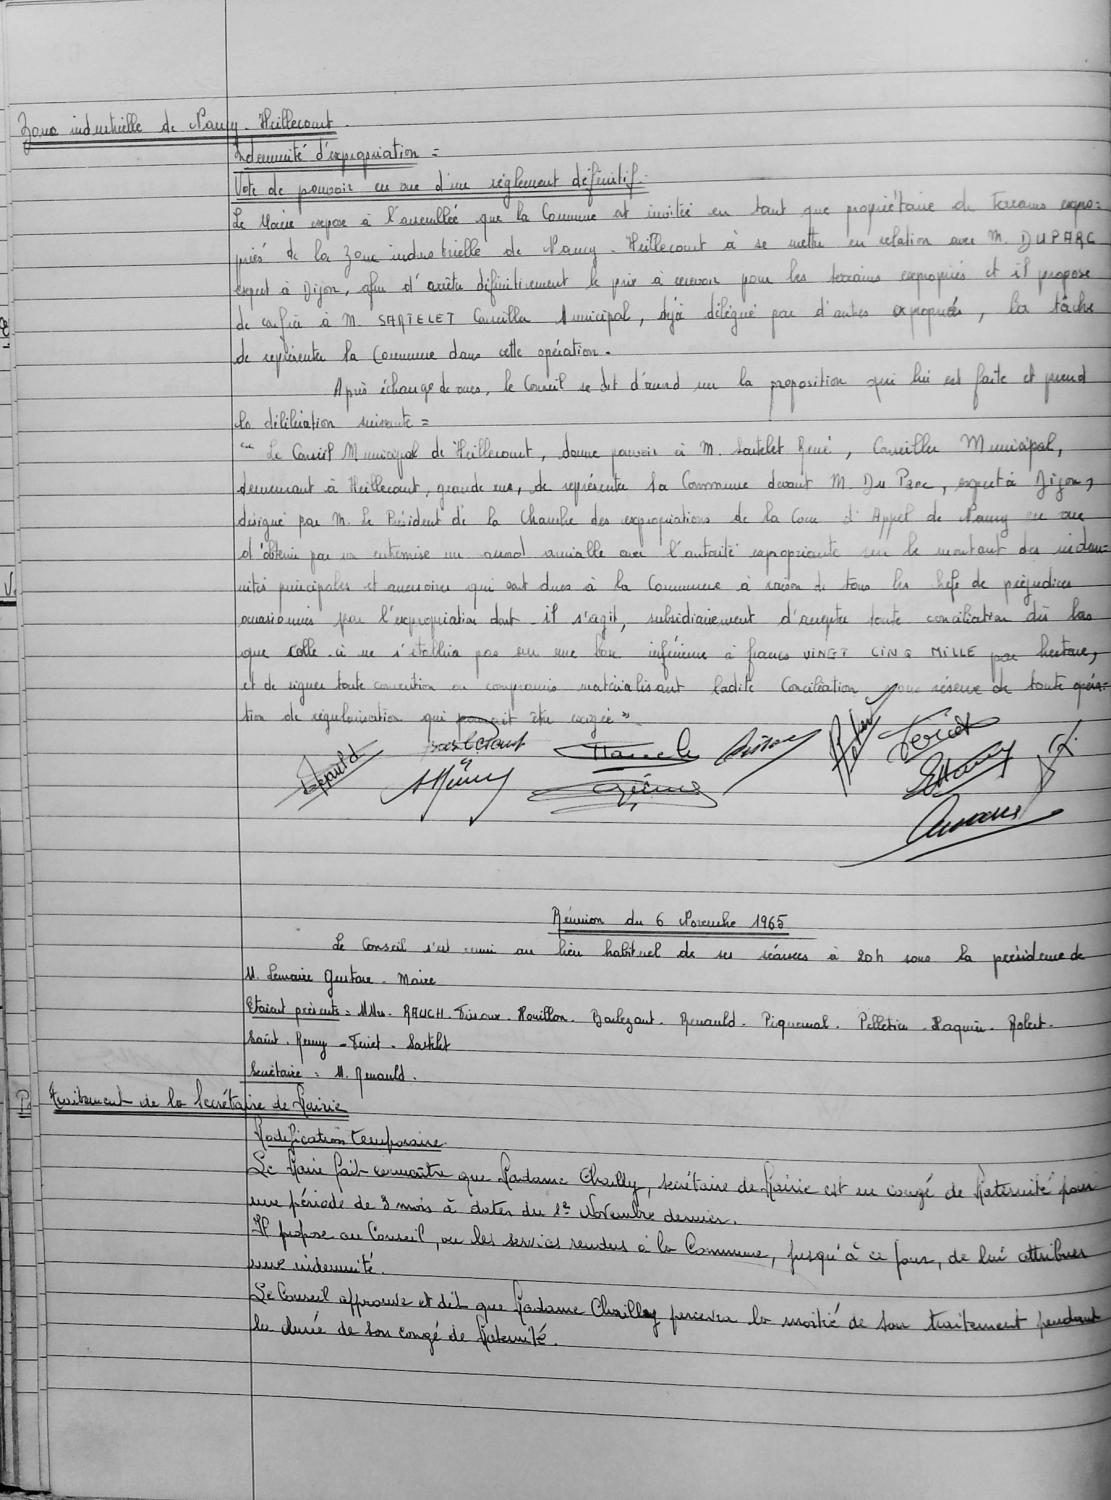 Zone industrielle de Nancy-Heillecourt.
Indemnité d'expropriation =
Vote de pouvoir en vue d'un règlement définitif.
Le Maire expose à l'assemblée que la Commune est invitée en tant que propriétaire de terrains expro=
priés de la Zone industrielle de Nancy-Heillecourt à se mettre en relation avec M. DUPARC
expert à Dijon, afin d'arrêter définitivement le prix à recevoir pour les terrains expropriés et il propose
de confier à M. SARTELET Conseiller Municipal, déjà délégué par d'autres expropriés, la tâche
de représenter la Commune dans cette opération.
Après échange de vues, le Conseil se dit d'accord sur la proposition qui lui est faite et prend
la délibération suivante =
" Le Conseil Municipal de Heillecourt, donne pouvoir à M. Sartelet René, Conseiller Municipal,
demeurant à Heillecourt, grande rue, de représenter la Commune devant M. Du Parc, expert à Dijon,
désigné par M. le Président de la Chambre des expropriations de la Cour d'Appel de Nancy en vue
d'obtenir par son entremise un accord amiable avec l'autorité expropriante sur le montant des indem=
nités principales et accessoires qui sont dues à la Commune à raison de tous les chefs de préjudices
occasionnés par l'expropriation dont il s'agit, subsidiairement d'accepter toute conciliation dès lors
que celle-ci ne s'établira pas sur une base inférieure à francs VINGT CINQ MILLE par hectare,
et de signer toute convention ou compromis matérialisant ladite Conciliation sous réserve de toute opéra=
tion de régularisation qui pourrait être exigée "
Renauld
Barlezant
Réunion du 6 Novembre 1965
Le Conseil s'est réuni au lieu habituel de ses séances à 20h sous la présidence de
M. Lemaire Gustave - Maire
Etaient présents = MMrs. RAUCH - Tisoux - Houillon - Barlezant - Renauld - Piquemal - Pelletier - Haquin - Robert -
Saint-Remy - Feriet - Sartelet
Secrétaire : M. Renauld.
P. Traitement de la Secrétaire de Mairie
Modification temporaire.
Le Maire fait connaître que Madame Chailly, secrétaire de Mairie est en congé de Maternité pour
une période de 3 mois à dater du 1er Novembre dernier.
Il propose au Conseil, vu les services rendus à la Commune, jusqu'à ce jour, de lui attribuer
une indemnité.
Le Conseil approuve et dit que Madame Chailley percevra la moitié de son traitement pendant
la durée de son congé de Maternité.